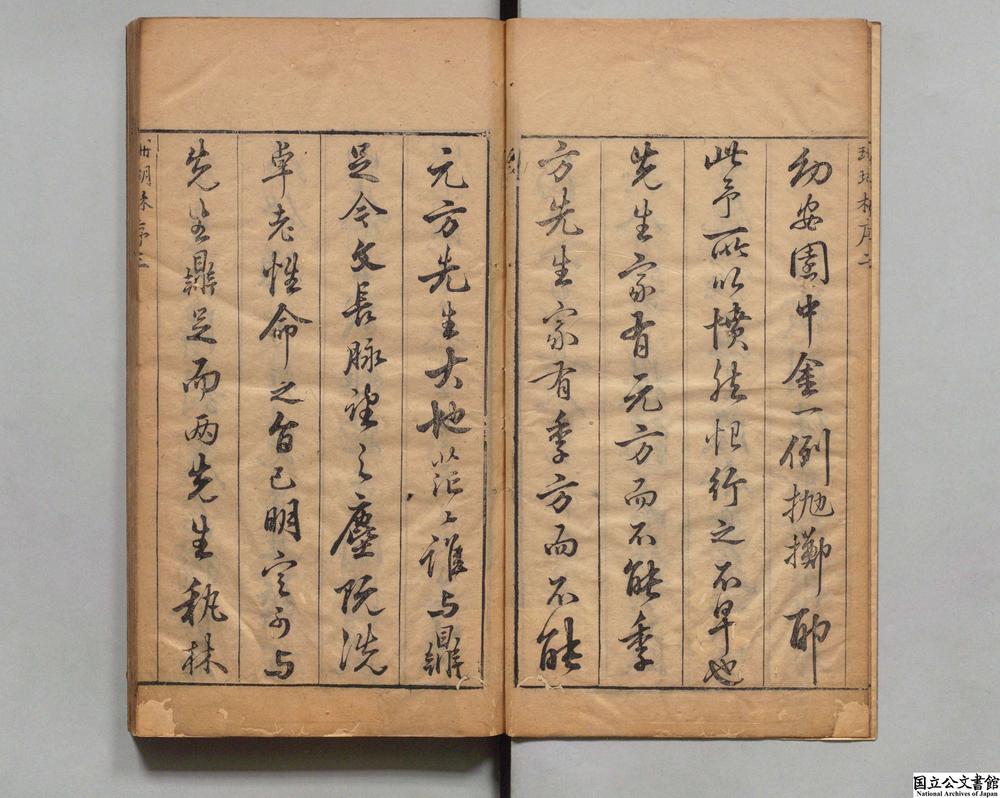 幼安園中金一例拋擲耶
此予所以憤然恨行之不早也
先生家有元方而不能季
方先生家有季方而不能
元方先生大地茫々誰与鼎
足令文長脉望之塵既洗
卓老性命之旨已明定可与
先生鼎足而两先生執林
国立公文書館
National Archives of Japan